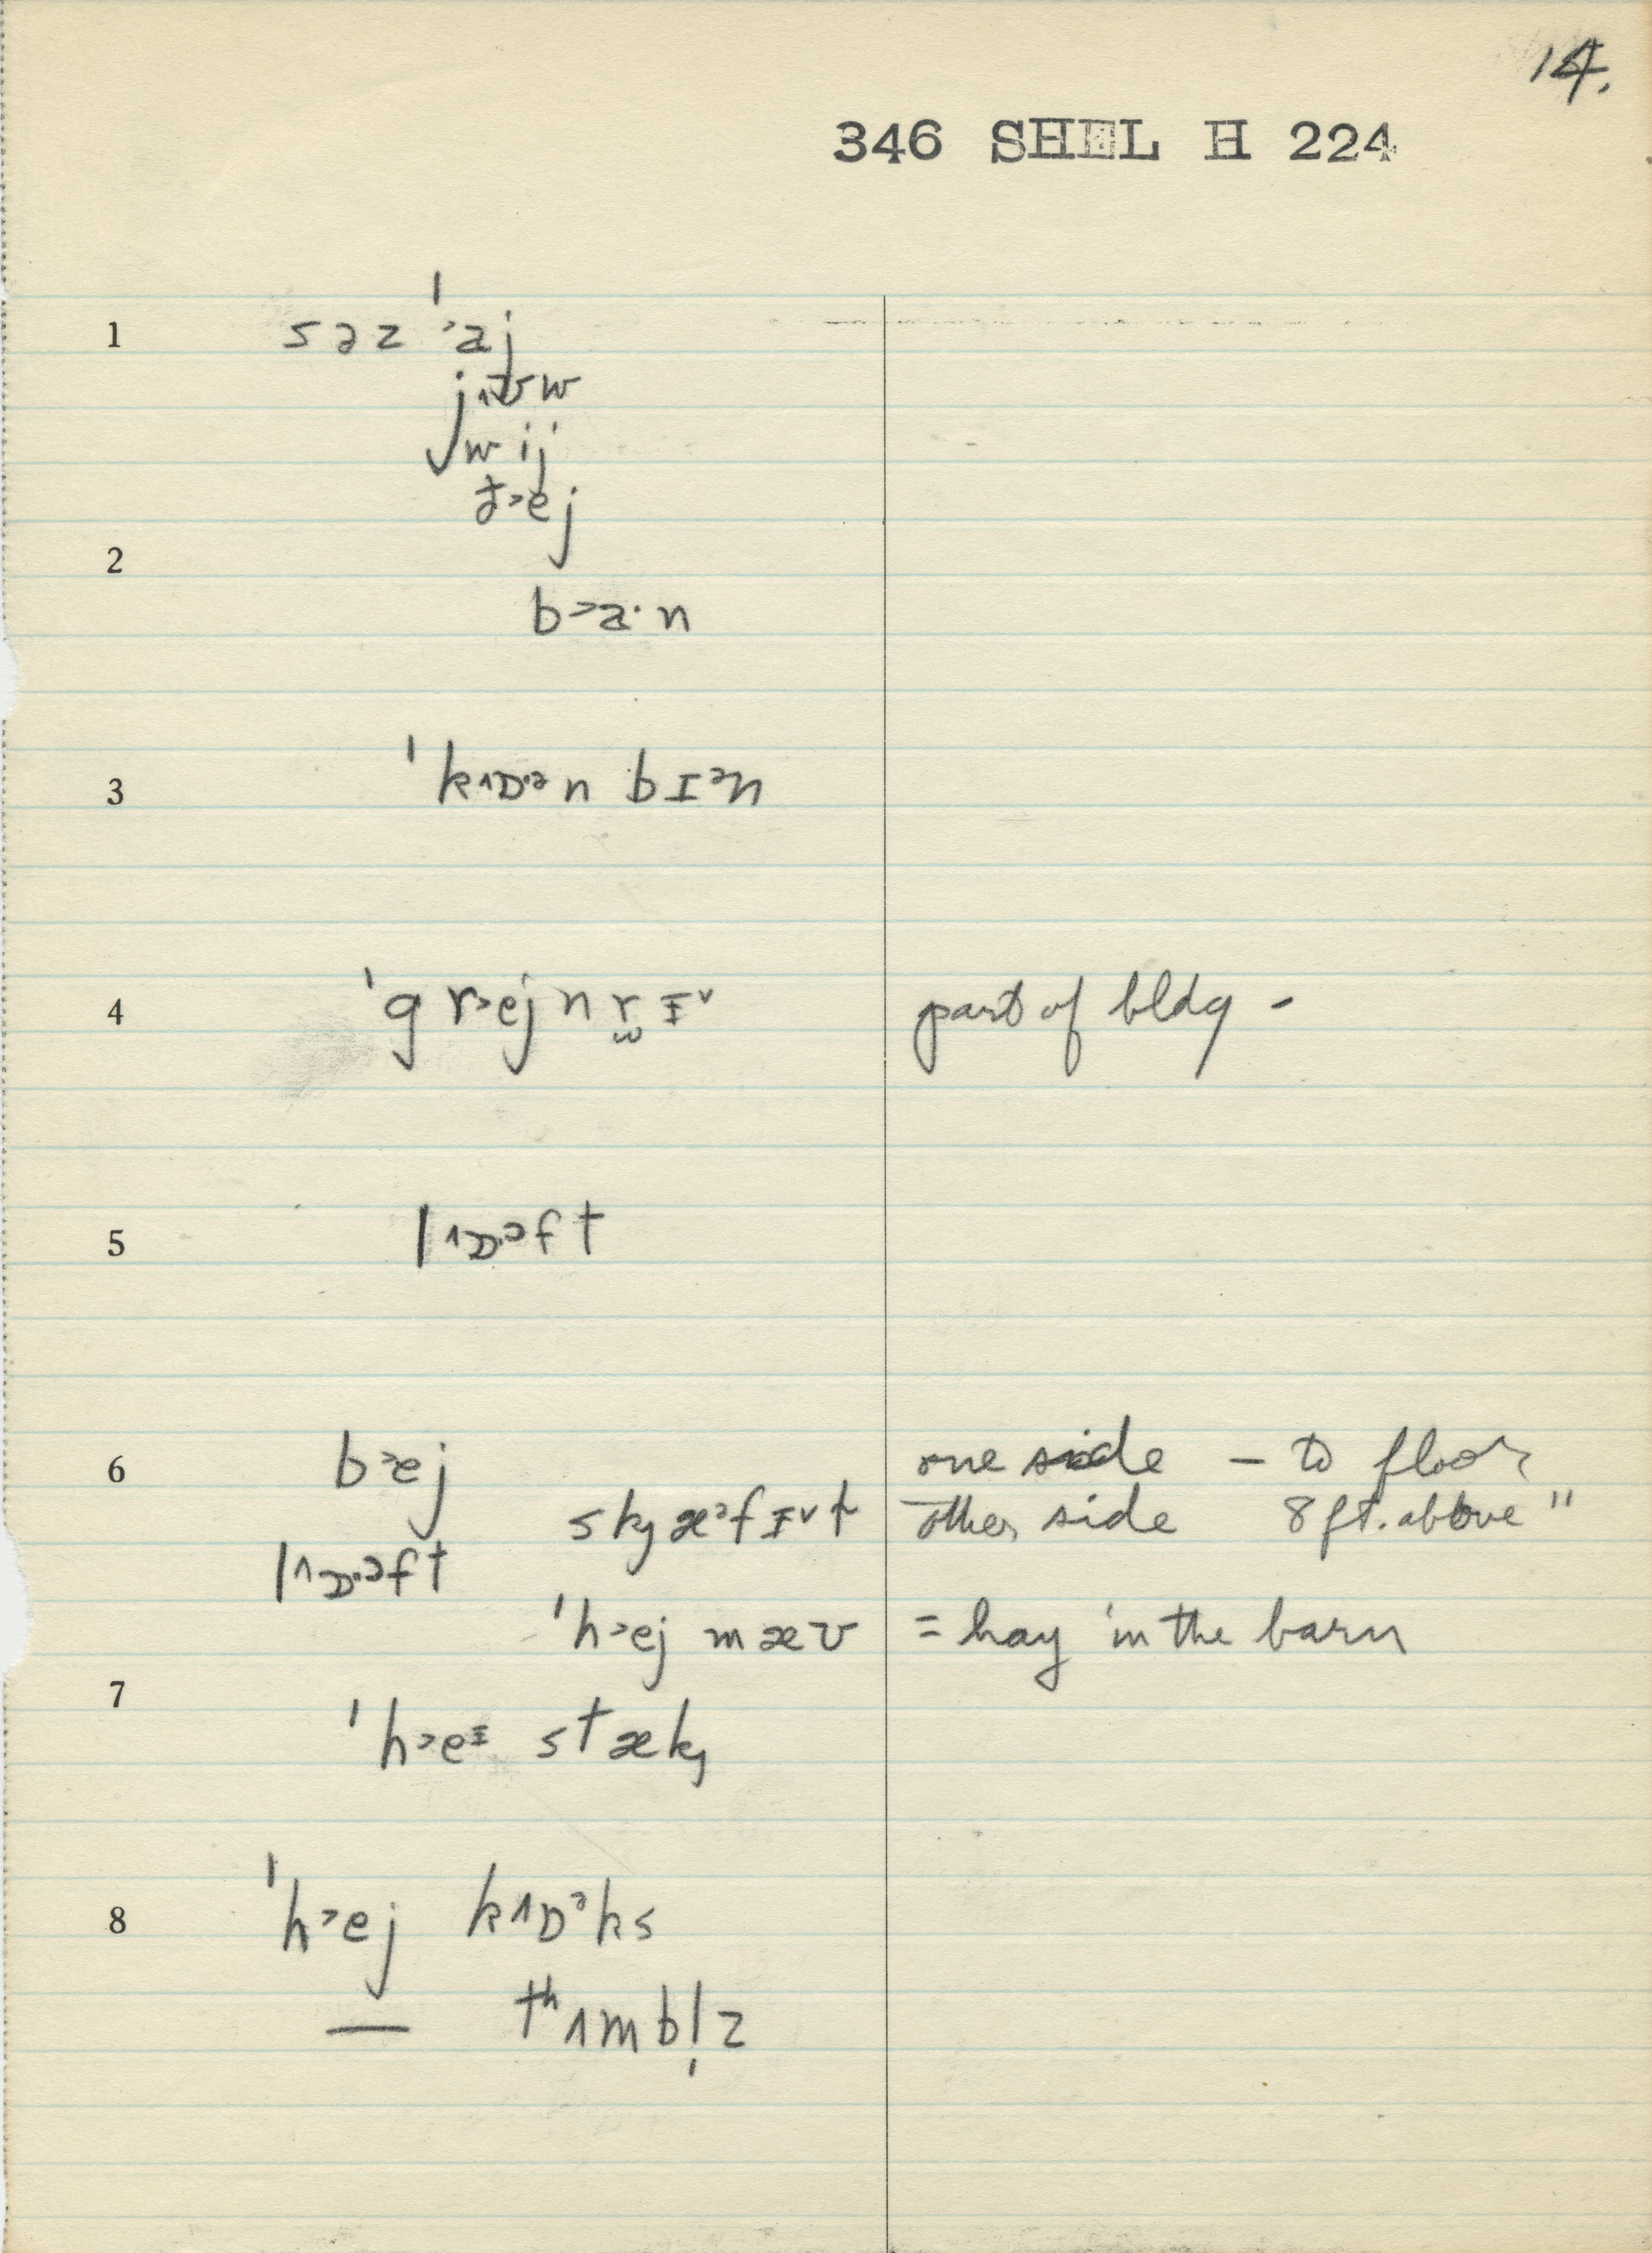 14.
346 SHEL H 224
1 səz ˈ˃aj
j˄ʊw
wij
ð˃ej
2
b˃a·n
3 ˈk˄ɒ·ᵊn bɪᵊn
4 ˈgr˃ejnr̫ɪ˅ part of bldg -
5 l˄ɒ·ᵊft
6 b˃ej one side – to floor
skj æᵊfɪ˅t other side 8 ft. above "
l˄ɒ·ᵊft
ˈh˃ej mæʊ = hay in the barn
7
ˈh˃eᶦ stækj
8 ˈh˃ej k˄ɒᵊks
— tʰʌmbl̩z